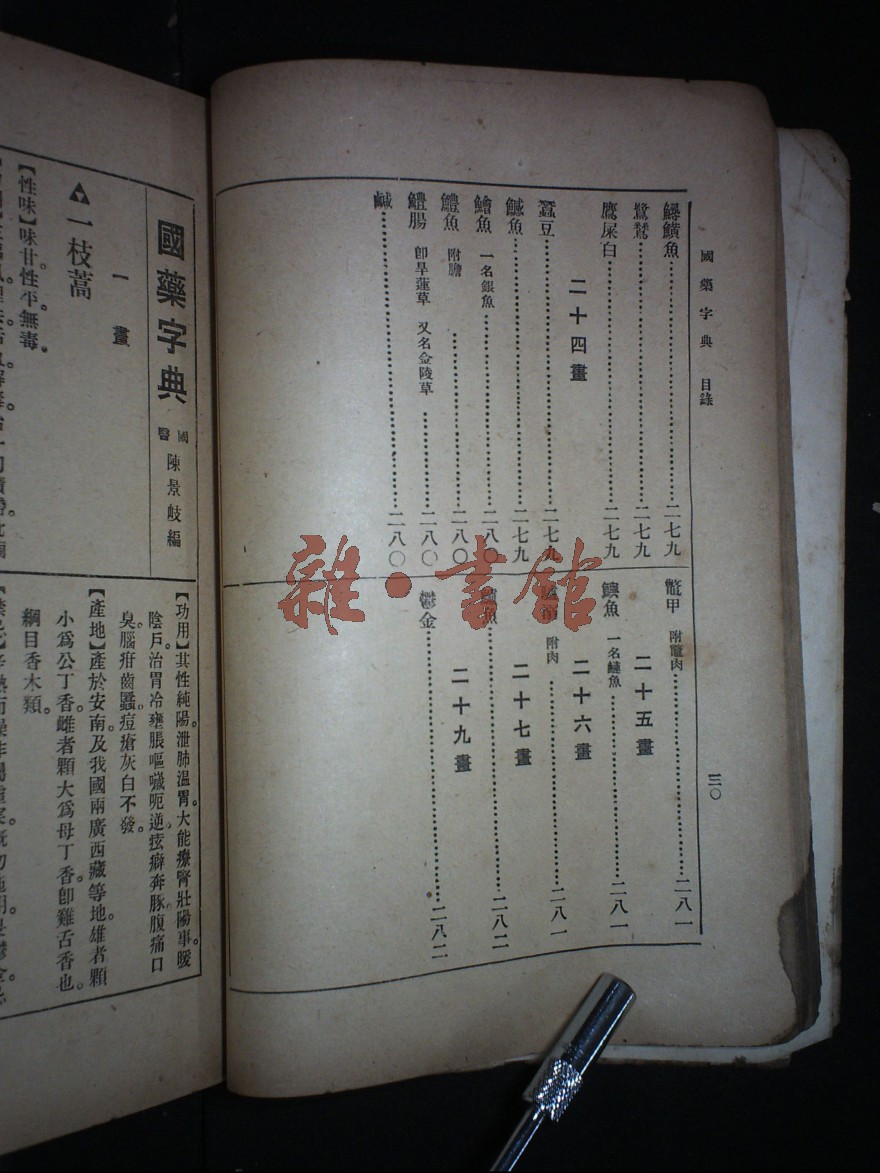 國藥字典 目錄
三〇
鱘鰉魚 二七九
鷺鷥 二七九
鷹屎白 二七九
二十四畫
蠶豆 二七九
鹹魚 二七九
鱠魚 一名銀魚 二八〇
鱧魚 附膽 二八〇
鱧腸 即旱蓮草 又名金陵草 二八〇
鹹 二八〇
鼈甲 附鼈肉 二八一
二十五畫
鱮魚 一名鰱魚 二八一
二十六畫
附肉 二八一
二十七畫
魚 二八二
二十九畫
鬱金 二八二
雜·書館
國藥字典
國醫 陳景岐編
一畫
一枝蒿
【性味】味甘性平無毒。
【功用】其性純陽。泄肺溫胃。大能療腎壯陽事暖
陰戶治胃冷壅脹嘔噦呃逆痃癖奔豚腹痛口
臭腦疳齒䘌痘瘡灰白不發。
【產地】產於安南及我國兩廣西藏等地雄者顆
小為公丁香雌者顆大為母丁香即雞舌香也。
綱目香木類。